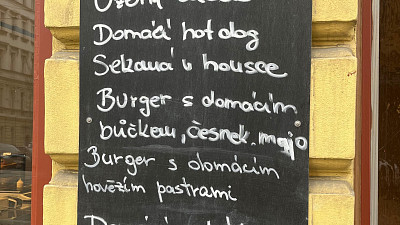 Domácí hot dog
Sekaná v housce
Burger s domácím
bůčkem, česnek. majo
Burger s domácím
hovězím pastrami